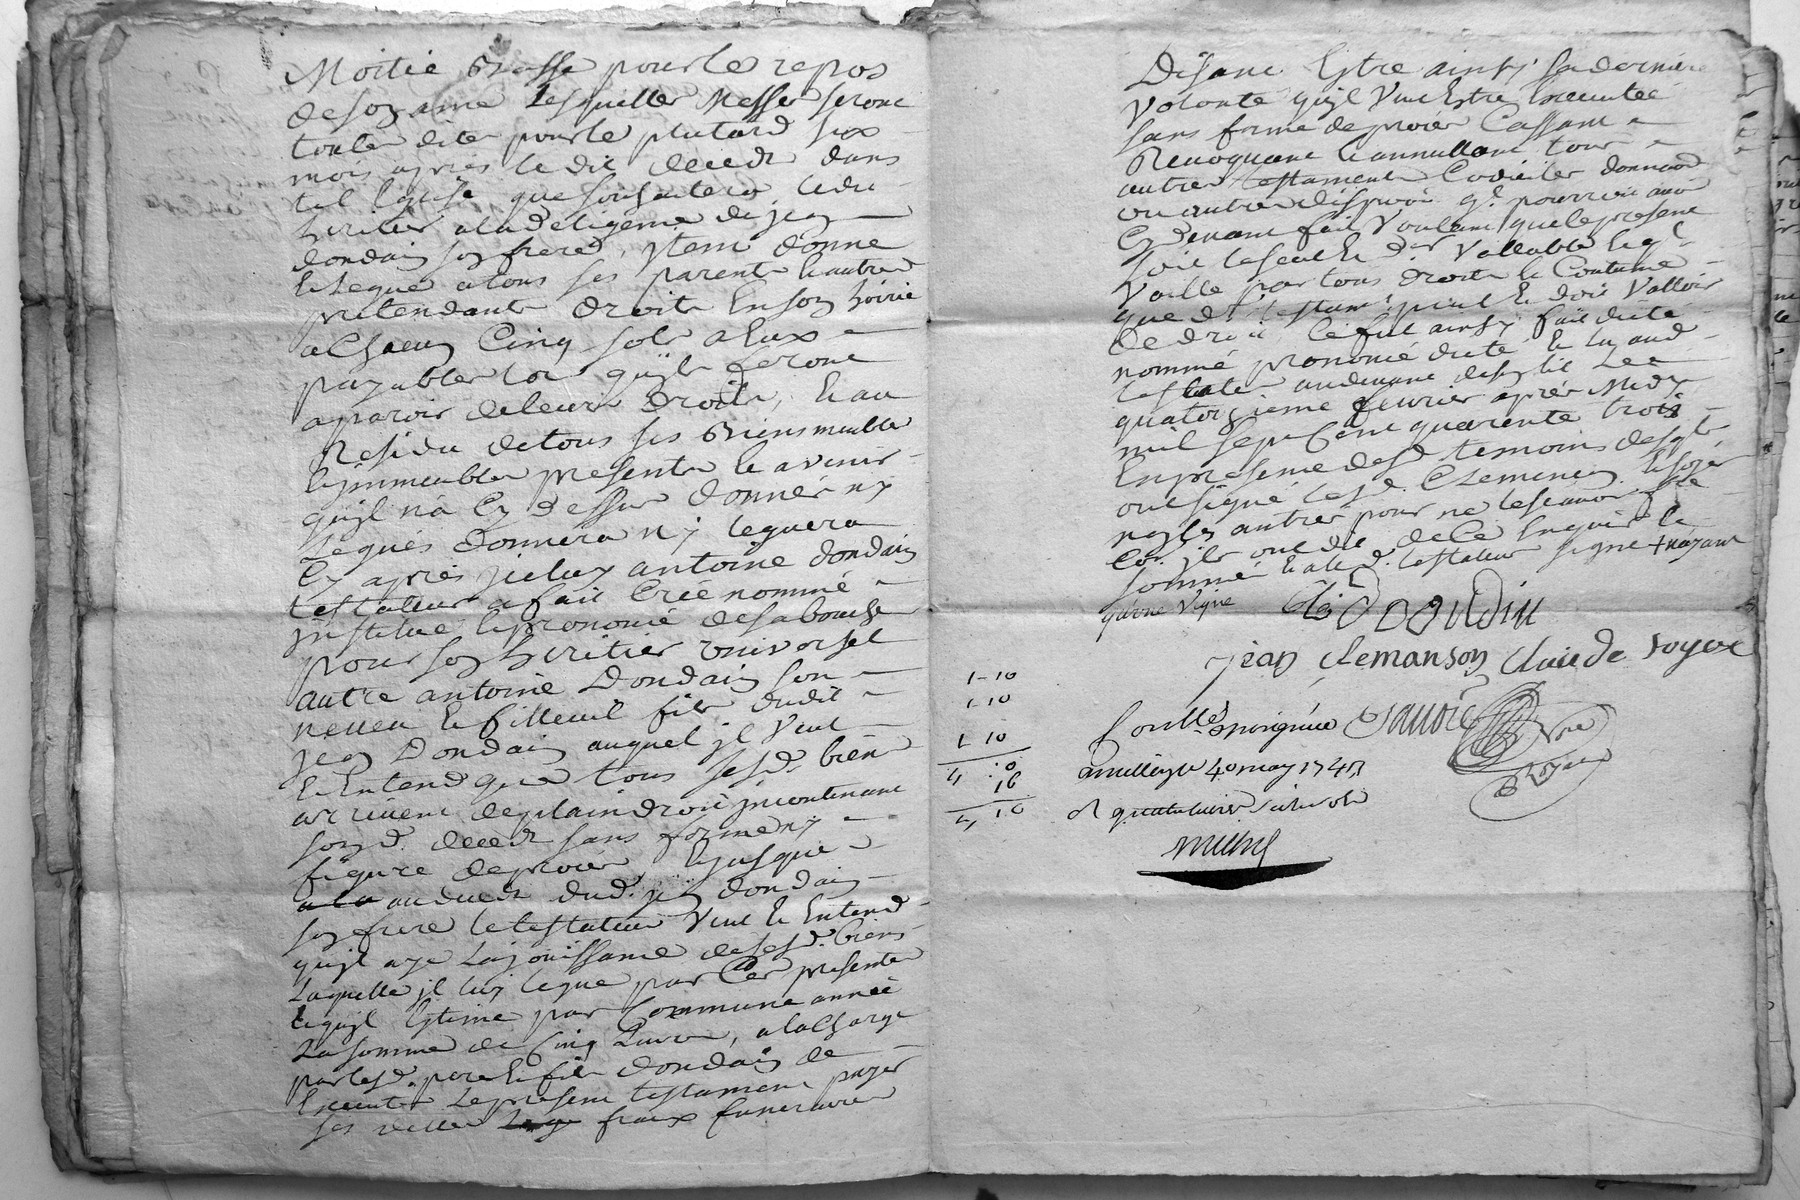 Moitié Basse pour le repos
de son ame lesquelles Messes seront
toutes dites pour le plutard six
mois apres le dit deceds dans
tel Eglise que souhaitera ledit
heritier a la deligence de jean
dondain son frere, jtem donne
et legue a tous ses parents et autres
pretendants droits En son hoirie
a Chacun Cinq sols a Eux
payables lors quils feront
aparoir de leurs droits, Et au
Residu de tous ses Biens meubles
Et jmmeubles presents et avenir
quil n'a Cy dessus donnés ny
legués donnera ny leguera
Cy apres jceluy antoine dondain
testateur a fait Créé nommé
jnstitué Et prononcé de sa bouche
pour son heritier universel
autre antoine Dondain son
neveu et filleul fils dudit
jean Dondain auquel jl veut
et Entend que tous sesd. biens
arrivent de plain droit jncontinant
sond. deceds sans forme ny
figure de proces, Et jusque
au deceds dud. jean dondain
son frere le testateur veut et Entend
quil aye la jouissance de sesd. biens
laquelle jl luy legue par Ces presentes
Et quil Estime par Commune année
la somme de Cinq Livres, a la Charge
par lesd. pere et fils dondain de
Executer le present testament payer
ses dettes fraix funeraires
Disant Estre ainsy sa derniere
volonté quil veut Estre Executée
sans forme de proces Cassant
Revoquant et annullant tous
autres testaments Codicilles donnaons
ou autres dispoons q. pourroit avoir
Cy devant fait Voulant que le present
soit le seul et d.er vallable Et ql
vaille par tous droits et Coutume
que d. testamt peut et doit valloir
de droit, Ce fut ainsy fait dicté
nommé prononcé dicté et luy aud.
testateur audevant de son lit Le
quatorzieme fevrier après Midy
mil sept Cent quarente trois
En presence desd. temoins desqls
ont signé lesd. Clemencon Et soyer
non les autres pour ne le scavoir
Com. jls ont dit de Ce Enquis et
sommé et a led. testateur signé
Dondin
jean clemanson Claude soyer
1-10
1-10
1 10
4 :0
16
Conlle
a milly le 4e may 1743